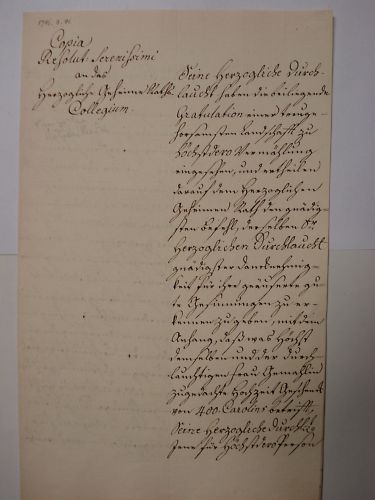 Copia
Resolut. Serenissimi
an das
Herzogliche Geheime Raths
Collegium.
Seine Herzogliche Durch-
laucht haben die beiliegende
Gratulation einer treuge-
horsamsten Landschafft zu
Höchstdero Vermählung
eingesehen, und ertheilen
darauf dem Herzoglichen
Geheimen Rath den gnädig-
sten Befehl, derselben Sr.
Herzoglichen Durchlaucht
gnädigster Dancknehmig-
keit für ihre geäuserte gu-
te Gesinnungen zu er-
kennen zu geben, mit dem
Anhang, daß was Höchst
demselben und der durch-
lauchtigen Frau Gemahlin
zugedachte Hochzeit Geschenk
von 400 Carolins betrifft,
Seine Herzogliche Durchlt.
Jene für Höchstdero Person